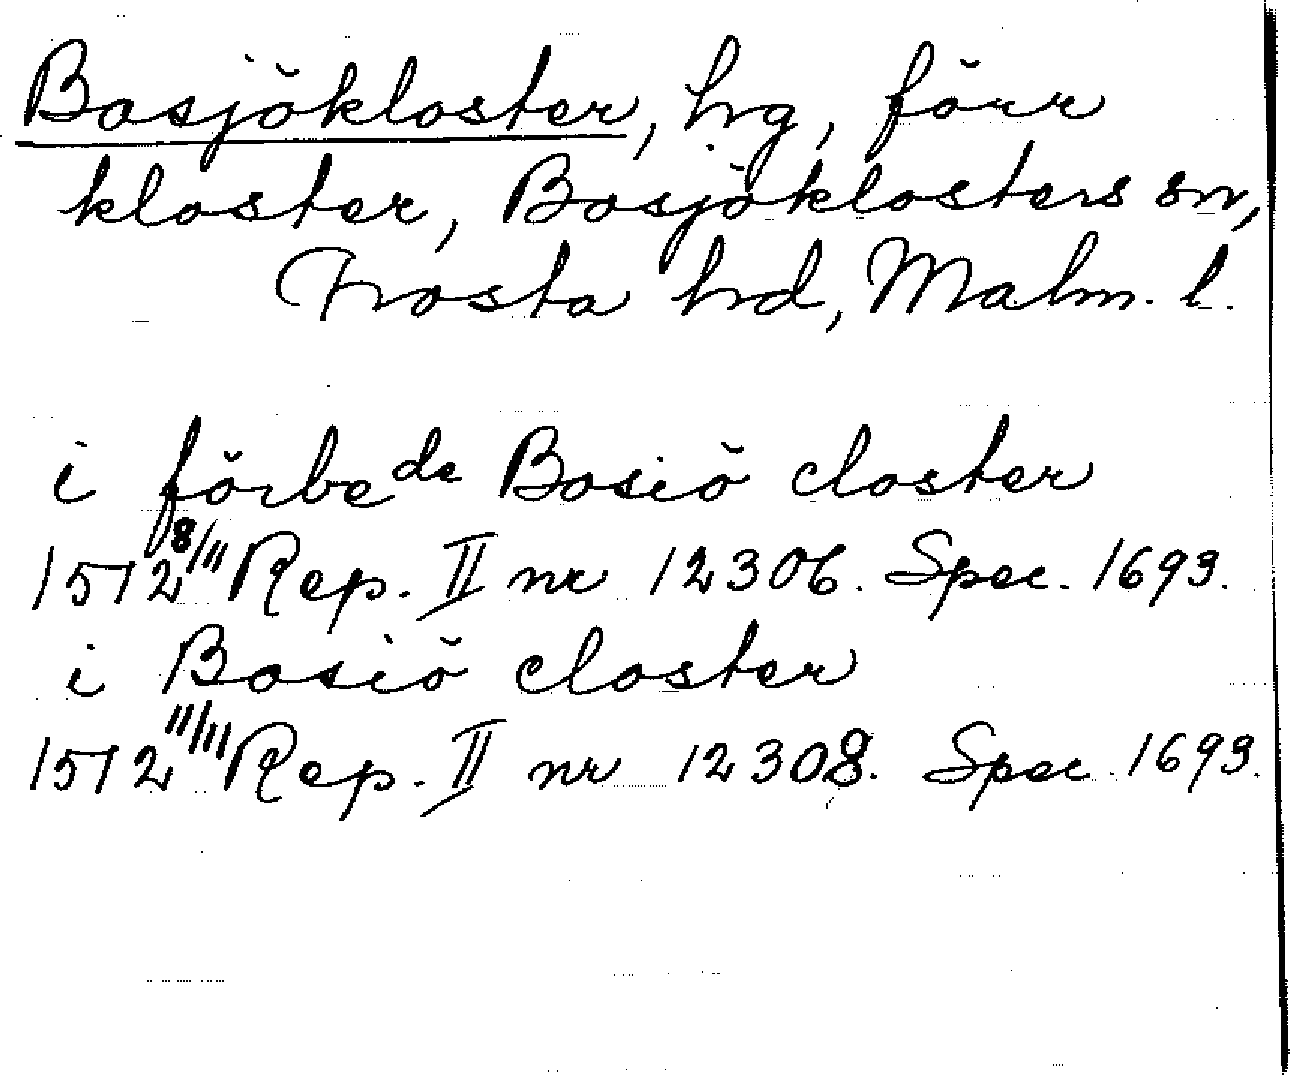 Bosjökloster, hg, förr
kloster, Bosjöklosters sn,
Frosta hd, Malm. l.
i förbe de Bosiö closter
1572 8/11 Rep. II nr 12306. Spec. 1693.
i Bosiö closter
1572 11/11 Rep. II nr 12308. Spec. 1693.